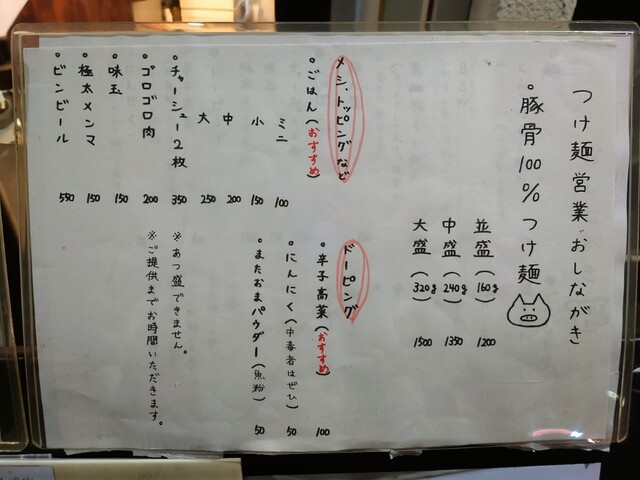 つけ麺営業おしながき
。豚骨100%つけ麺
並盛(160g) 1200
中盛(240g) 1350
大盛(320g) 1500
メシ、トッピングなど
。ごはん(おすすめ)
ミニ 100
小 150
中 200
大 250
。チャーシュー2枚 350
。ゴロゴロ肉 200
。味玉 150
。極太メンマ 150
。ビンビール 550
ドーピング
。辛子高菜(おすすめ) 100
。にんにく(中毒者はぜひ) 50
。またおまパウダー(魚粉) 50
※あつ盛できません。
※ご提供までお時間いただきます。